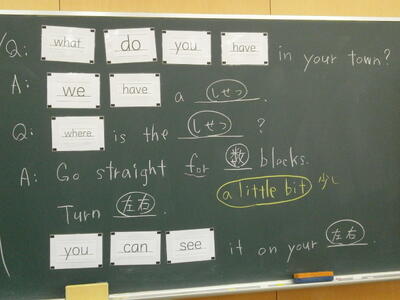 Q: what do you have in your town?
A: we have a しせつ.
Q: where is the しせつ ?
A: Go straight for 数 blocks.
a little bit 少し
Turn 左右.
you can see it on your 左右.